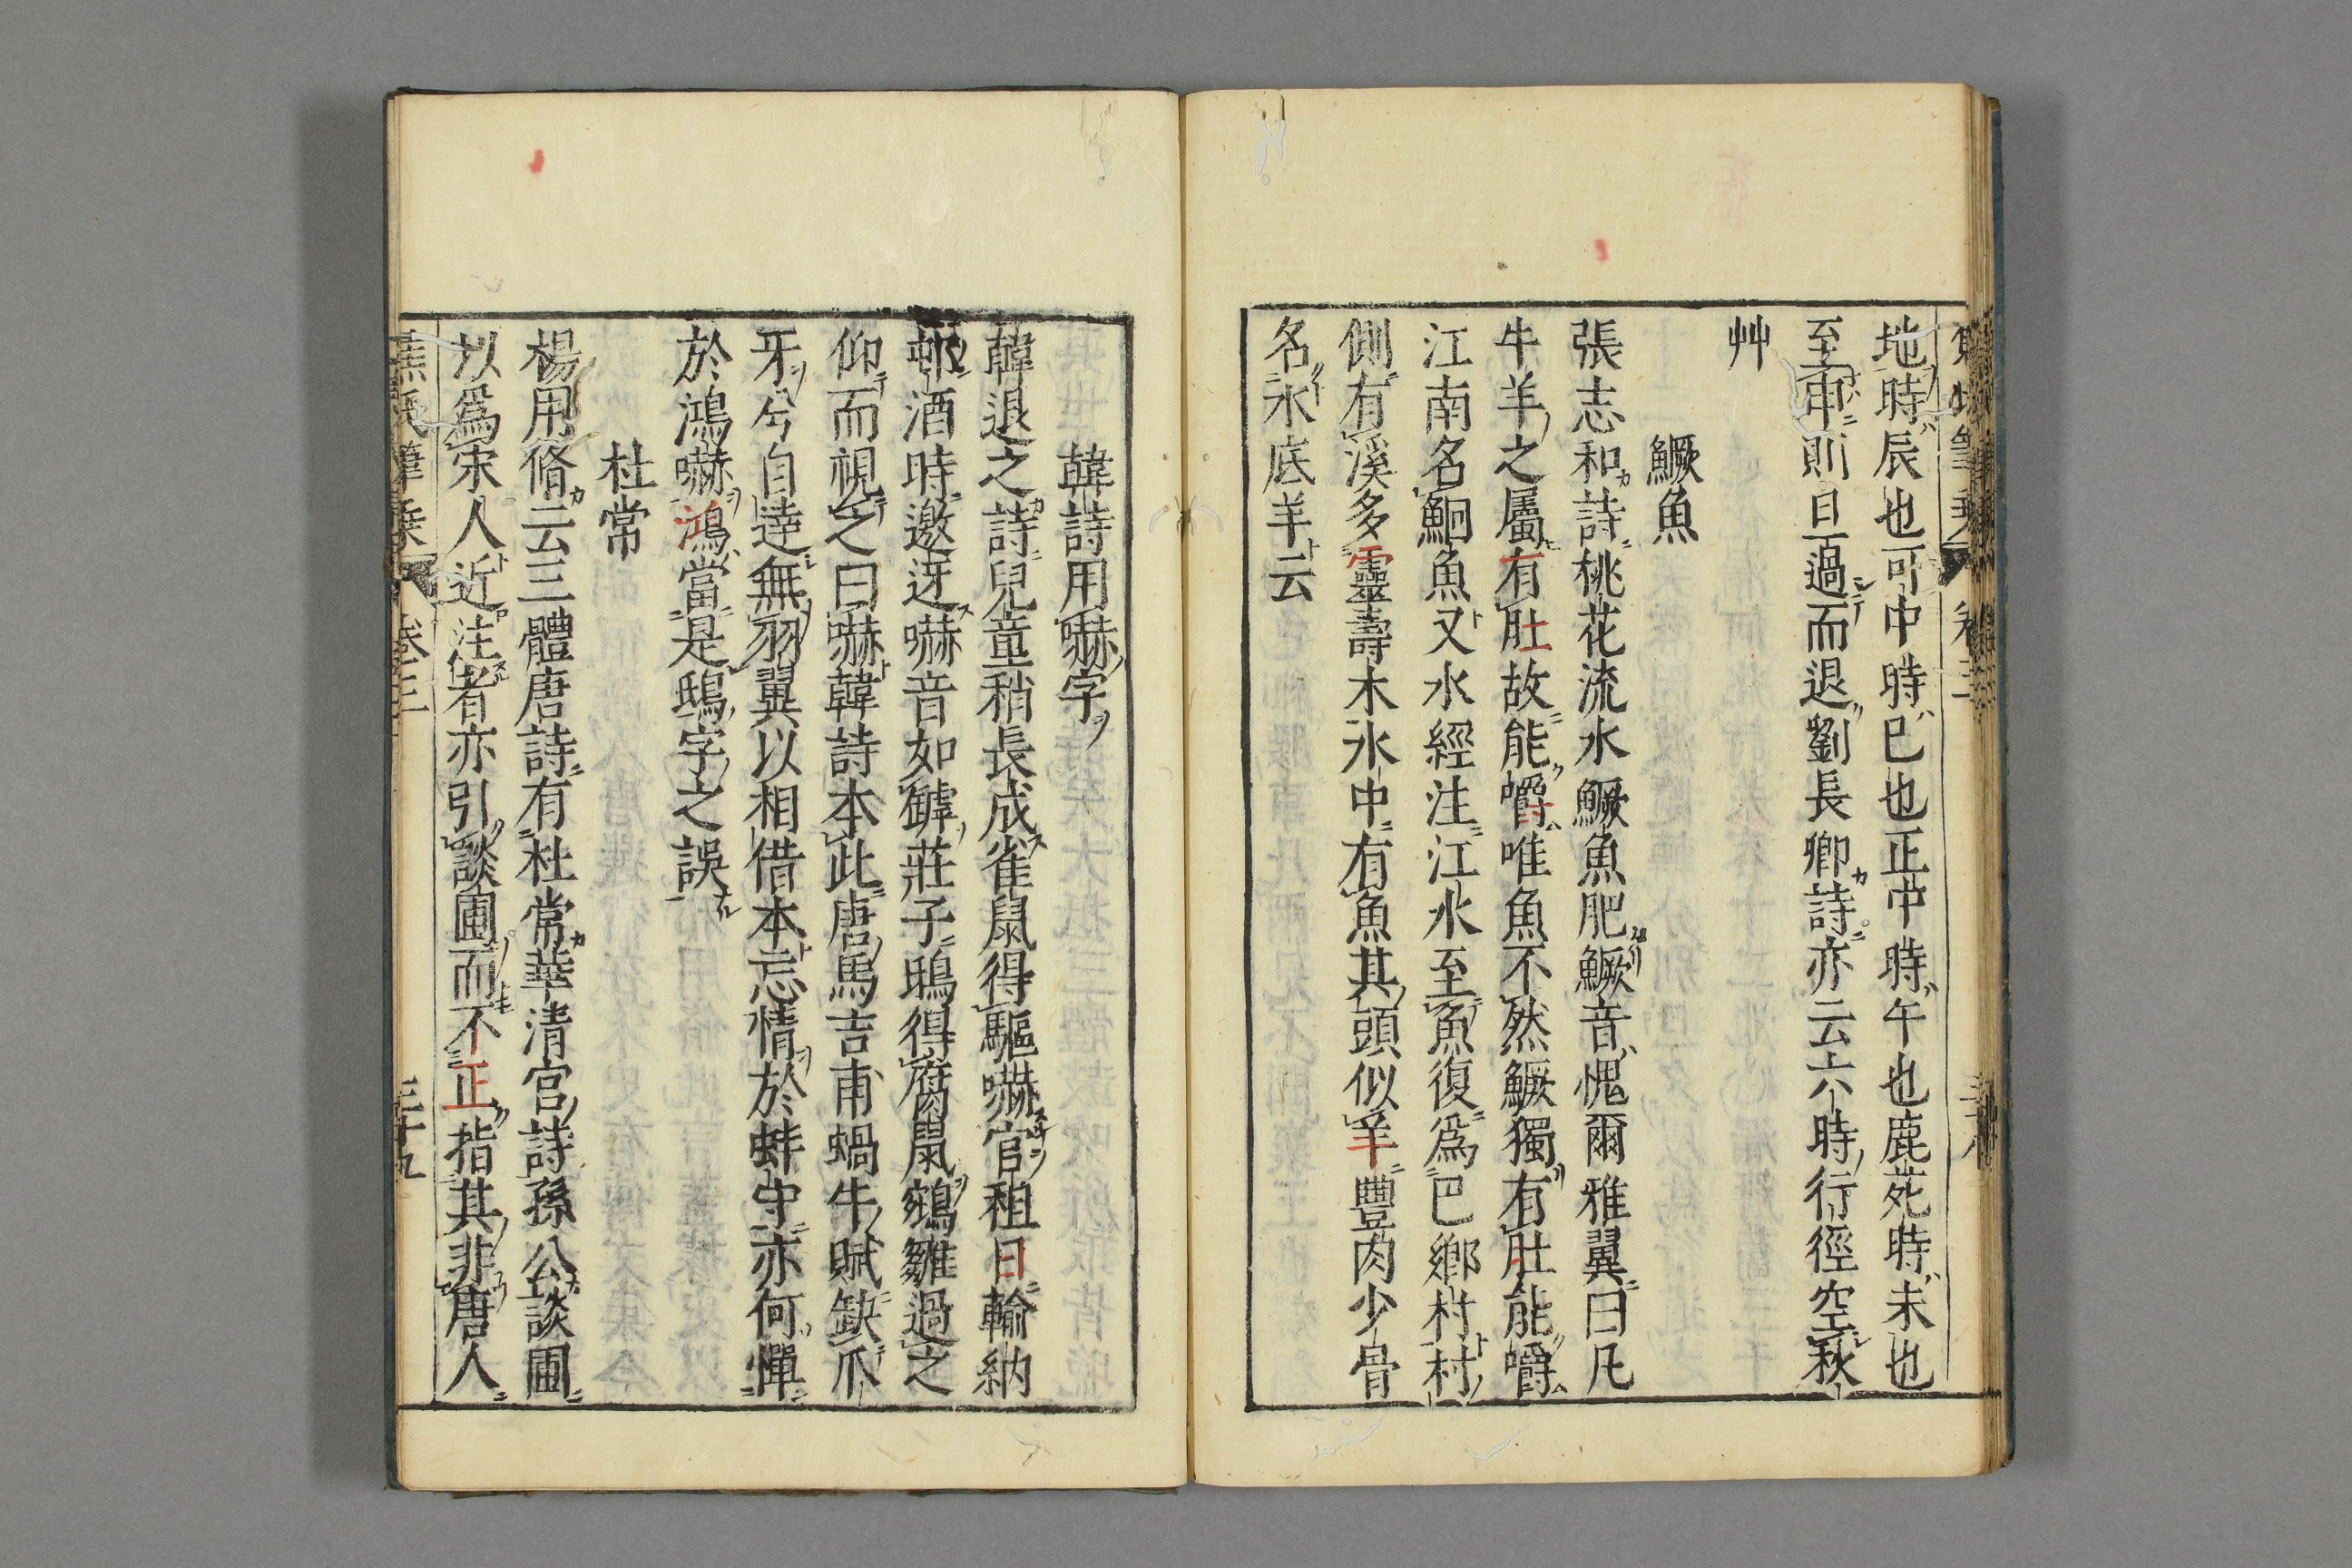 地時辰也可中時巳也正中時午也鹿死時未也
至申則日過而退劉長卿詩亦云六時行徑空秋
艸
鱖魚
張志和詩桃花流水鱖魚肥鱖音愧爾雅翼曰凡
牛羊之屬有肚故能嚼唯魚不然鱖獨有肚能嚼
江南名鮰魚又水經注江水至魚復爲巴鄉村村
側有溪多靈壽木水中有魚其頭似羊豐肉少骨
名水底羊云
韓詩用嚇字
韓退之詩兒童稍長成雀鼠得驅嚇官租日輸納
邨酒時邀迓嚇音如罅莊子鴟得腐鼠鵷雛過之
仰而視之曰嚇韓詩本此唐馬吉甫蝸牛賦缺爪
牙兮自達無羽翼以相借本忘情於蚌守亦何憚
於鴻嚇鴻當是鴟字之誤
杜常
楊用脩云三體唐詩有杜常華清宮詩孫公談圃
以爲宋人近注者亦引談圃而不正指其非唐人
焦氏筆乗 卷三 三十九